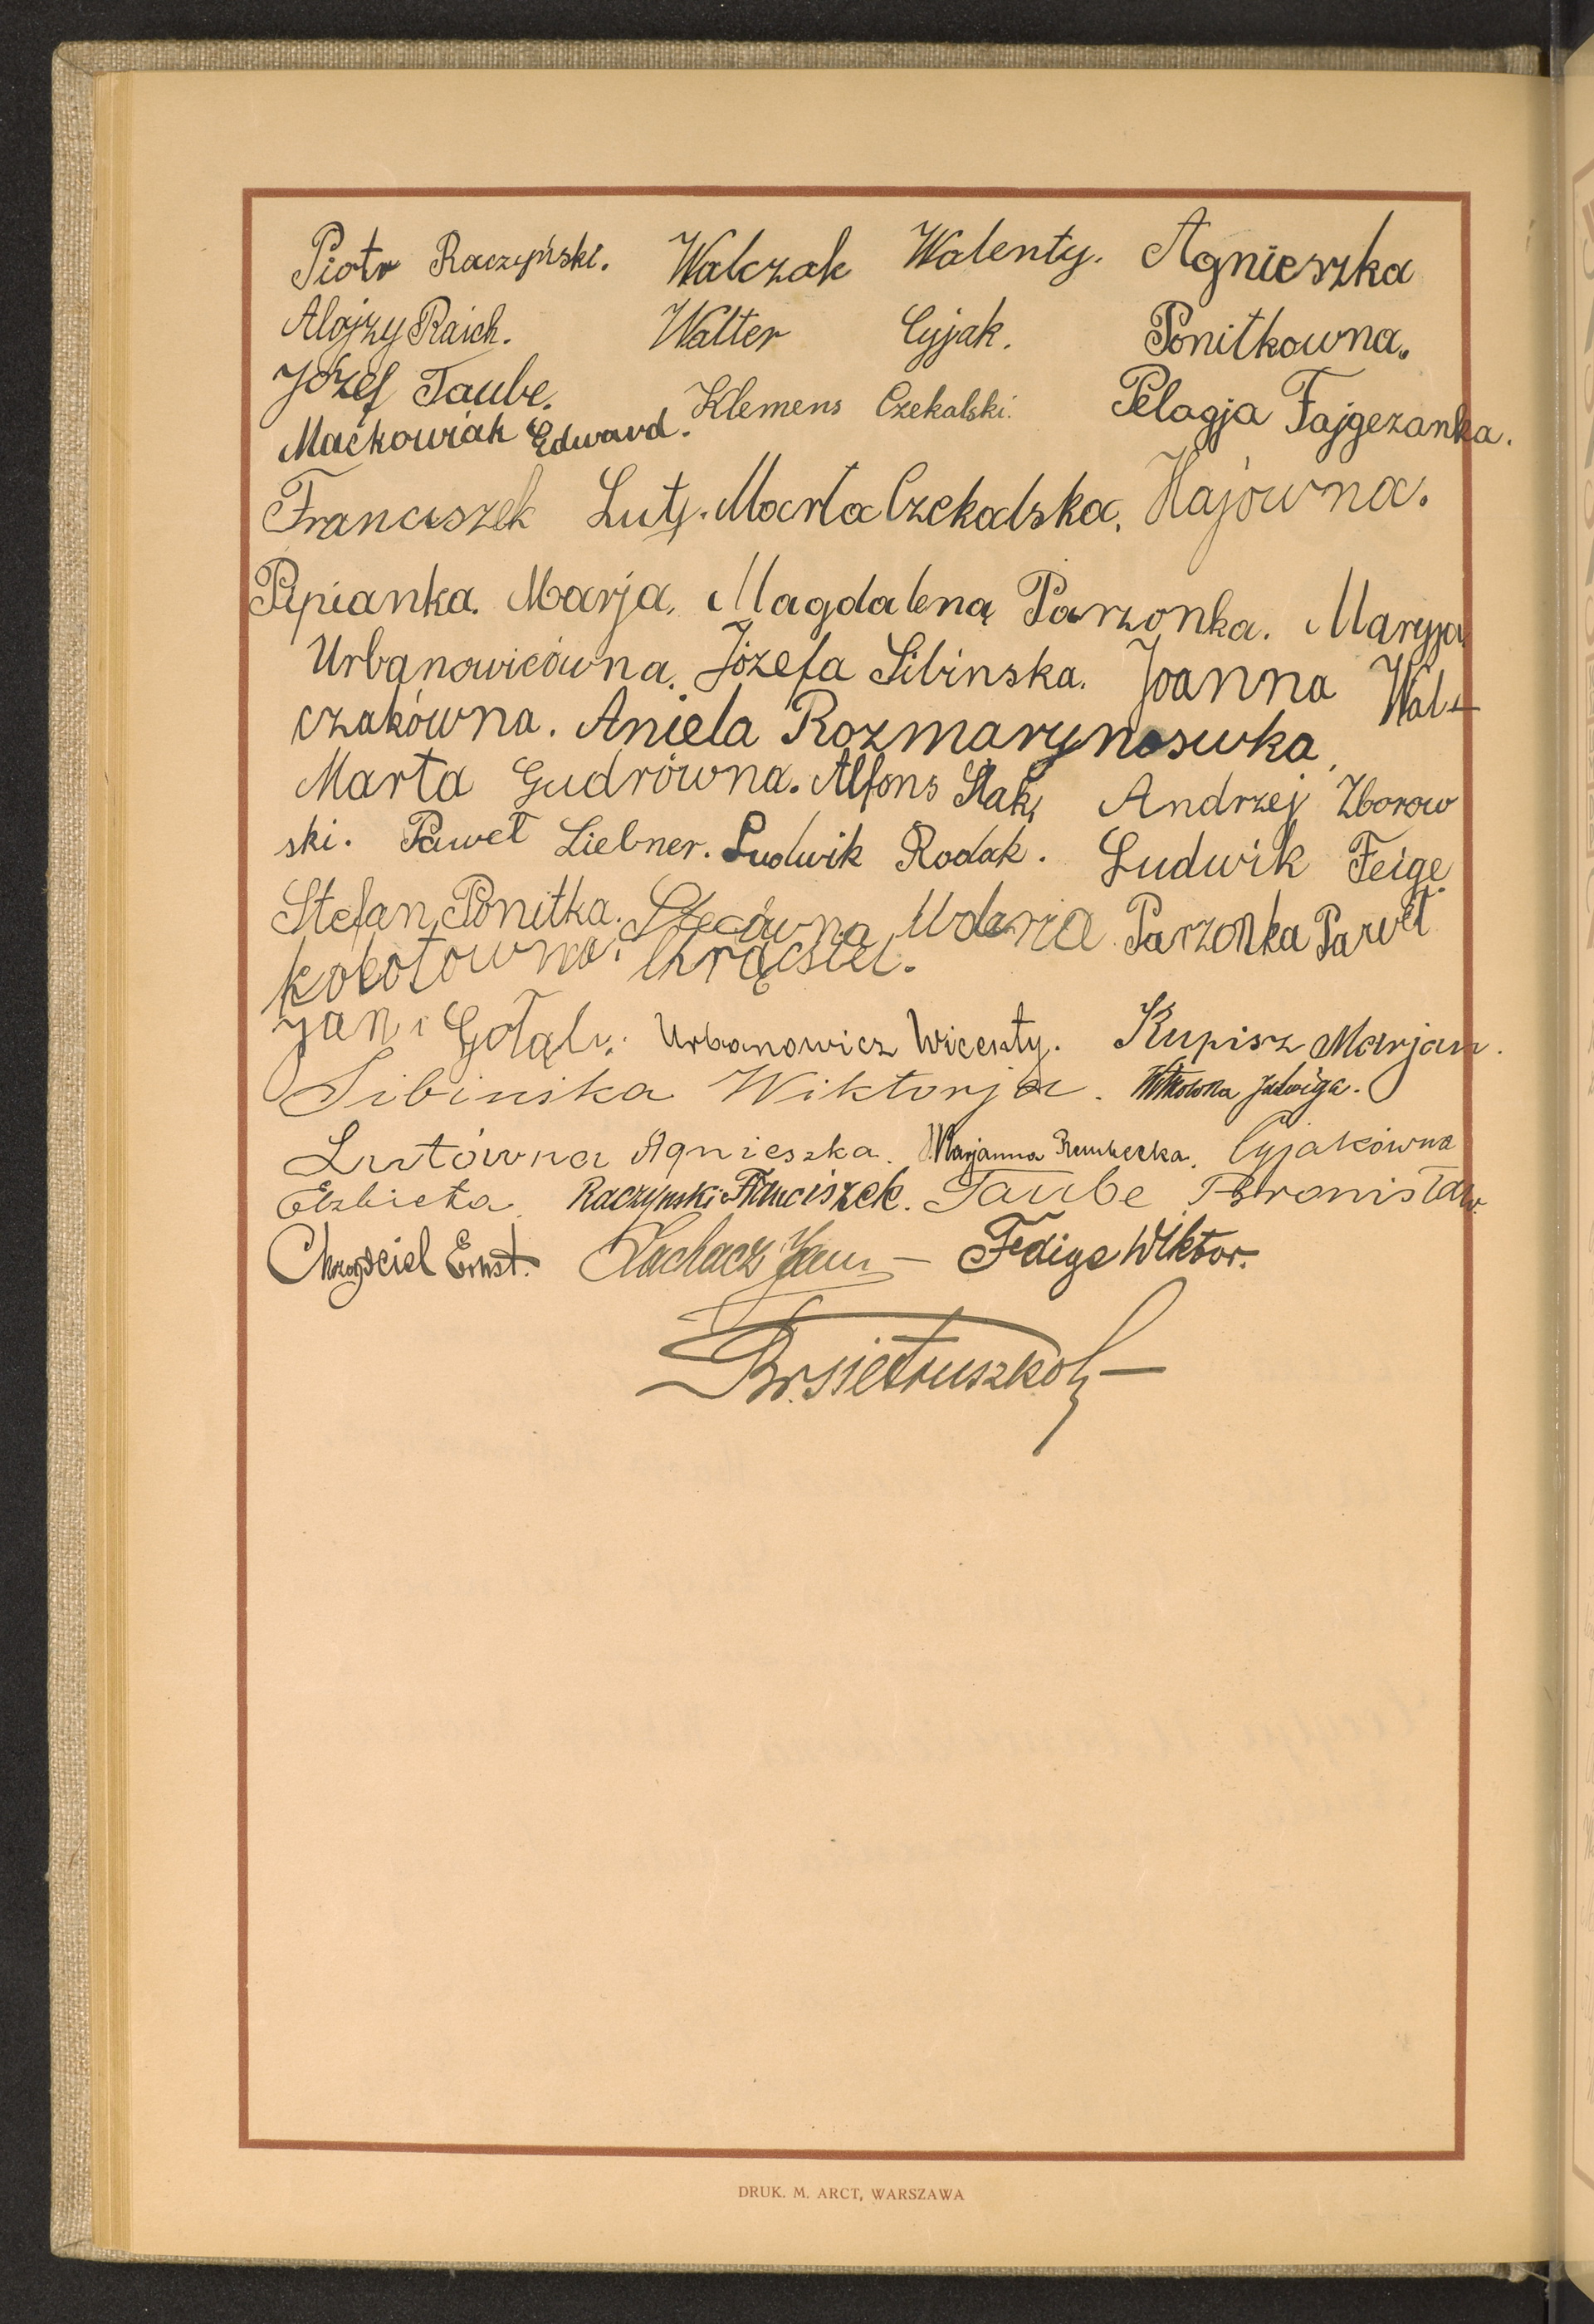 Piotr Raczyński. Walczak Walenty. Agnieszka
Alojzy Raich. Walter Cyjak. Ponitkowna.
Józef Taube. Klemens Czekalski. Pelagja Fajgezanka.
Maćkowiak Edward.
Franciszek Luty. Marta Czekalska. Hajówna.
Pipianka. Marja. Magdalena Parzonka. Maryja
Urbanowicówna. Józefa Sibinska. Joanna Wal-
czakówna. Aniela Rozmarynoswka,
Marta Gudrówna. Alfons Ptak, Andrzej Zborow
ski. Paweł Liebner. Ludwik Rodak. Ludwik Feige.
Stefan Ponitka. Marja Parzonka Paweł
Kokotowna.
Jan Gołąb. Urbanowicz Wicenty. Kupisz Marjan.
Sibinska Wiktorja. Witkowna Jadwiga.
Lutówna Agnieszka. Marjanna Rembecka. Cyjakówna
Elzbieta. Raczynski Franciszek. Taube Bronisław.
Chrząściel Ernst. Jan — Feige Wiktor.
Br. Sietruszko
DRUK. M. ARCT, WARSZAWA